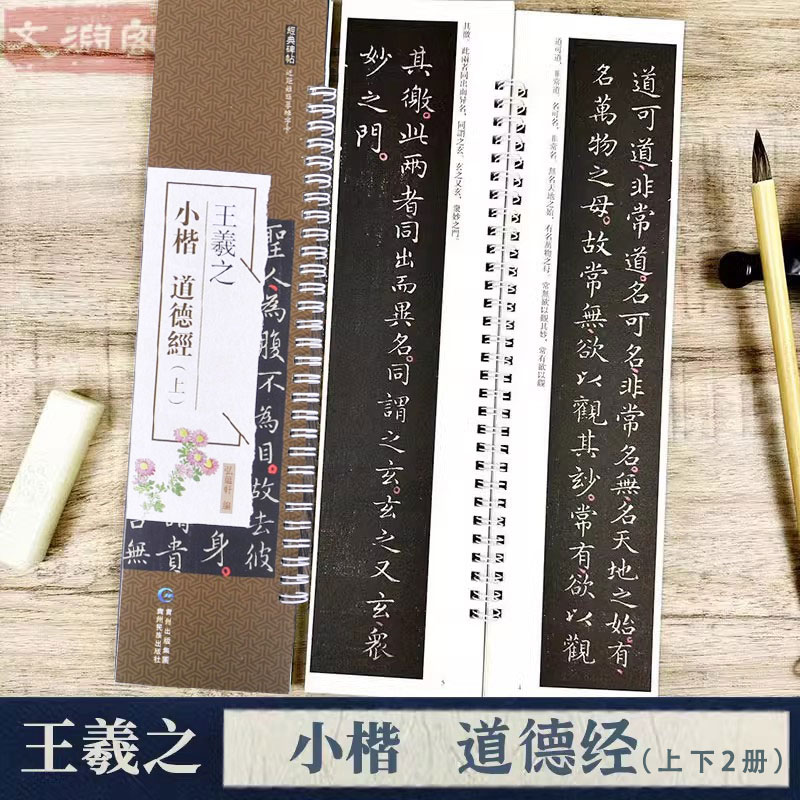 文渊阁
經典碑帖
近距離臨摹練字卡
王羲之
小楷 道德經(上)
聖人為腹不為目。故去彼
身。
貴
無
貴州出版集團
貴州民族出版社
道可道，非常道。名可名，非常名。無名天地之始，有名萬物之母。常無欲以觀其妙，常有欲以觀
道可道。非常道。名可名。非常名。無名天地之始。有
名萬物之母。故常無欲以觀其玅。常有欲以觀
4
其徼。此兩者同出而异名，同謂之玄，玄之又玄，衆妙之門。
其徼。此兩者同出而異名。同謂之玄。玄之又玄。衆
妙之門。
5
王羲之 小楷 道德经(上下2册)